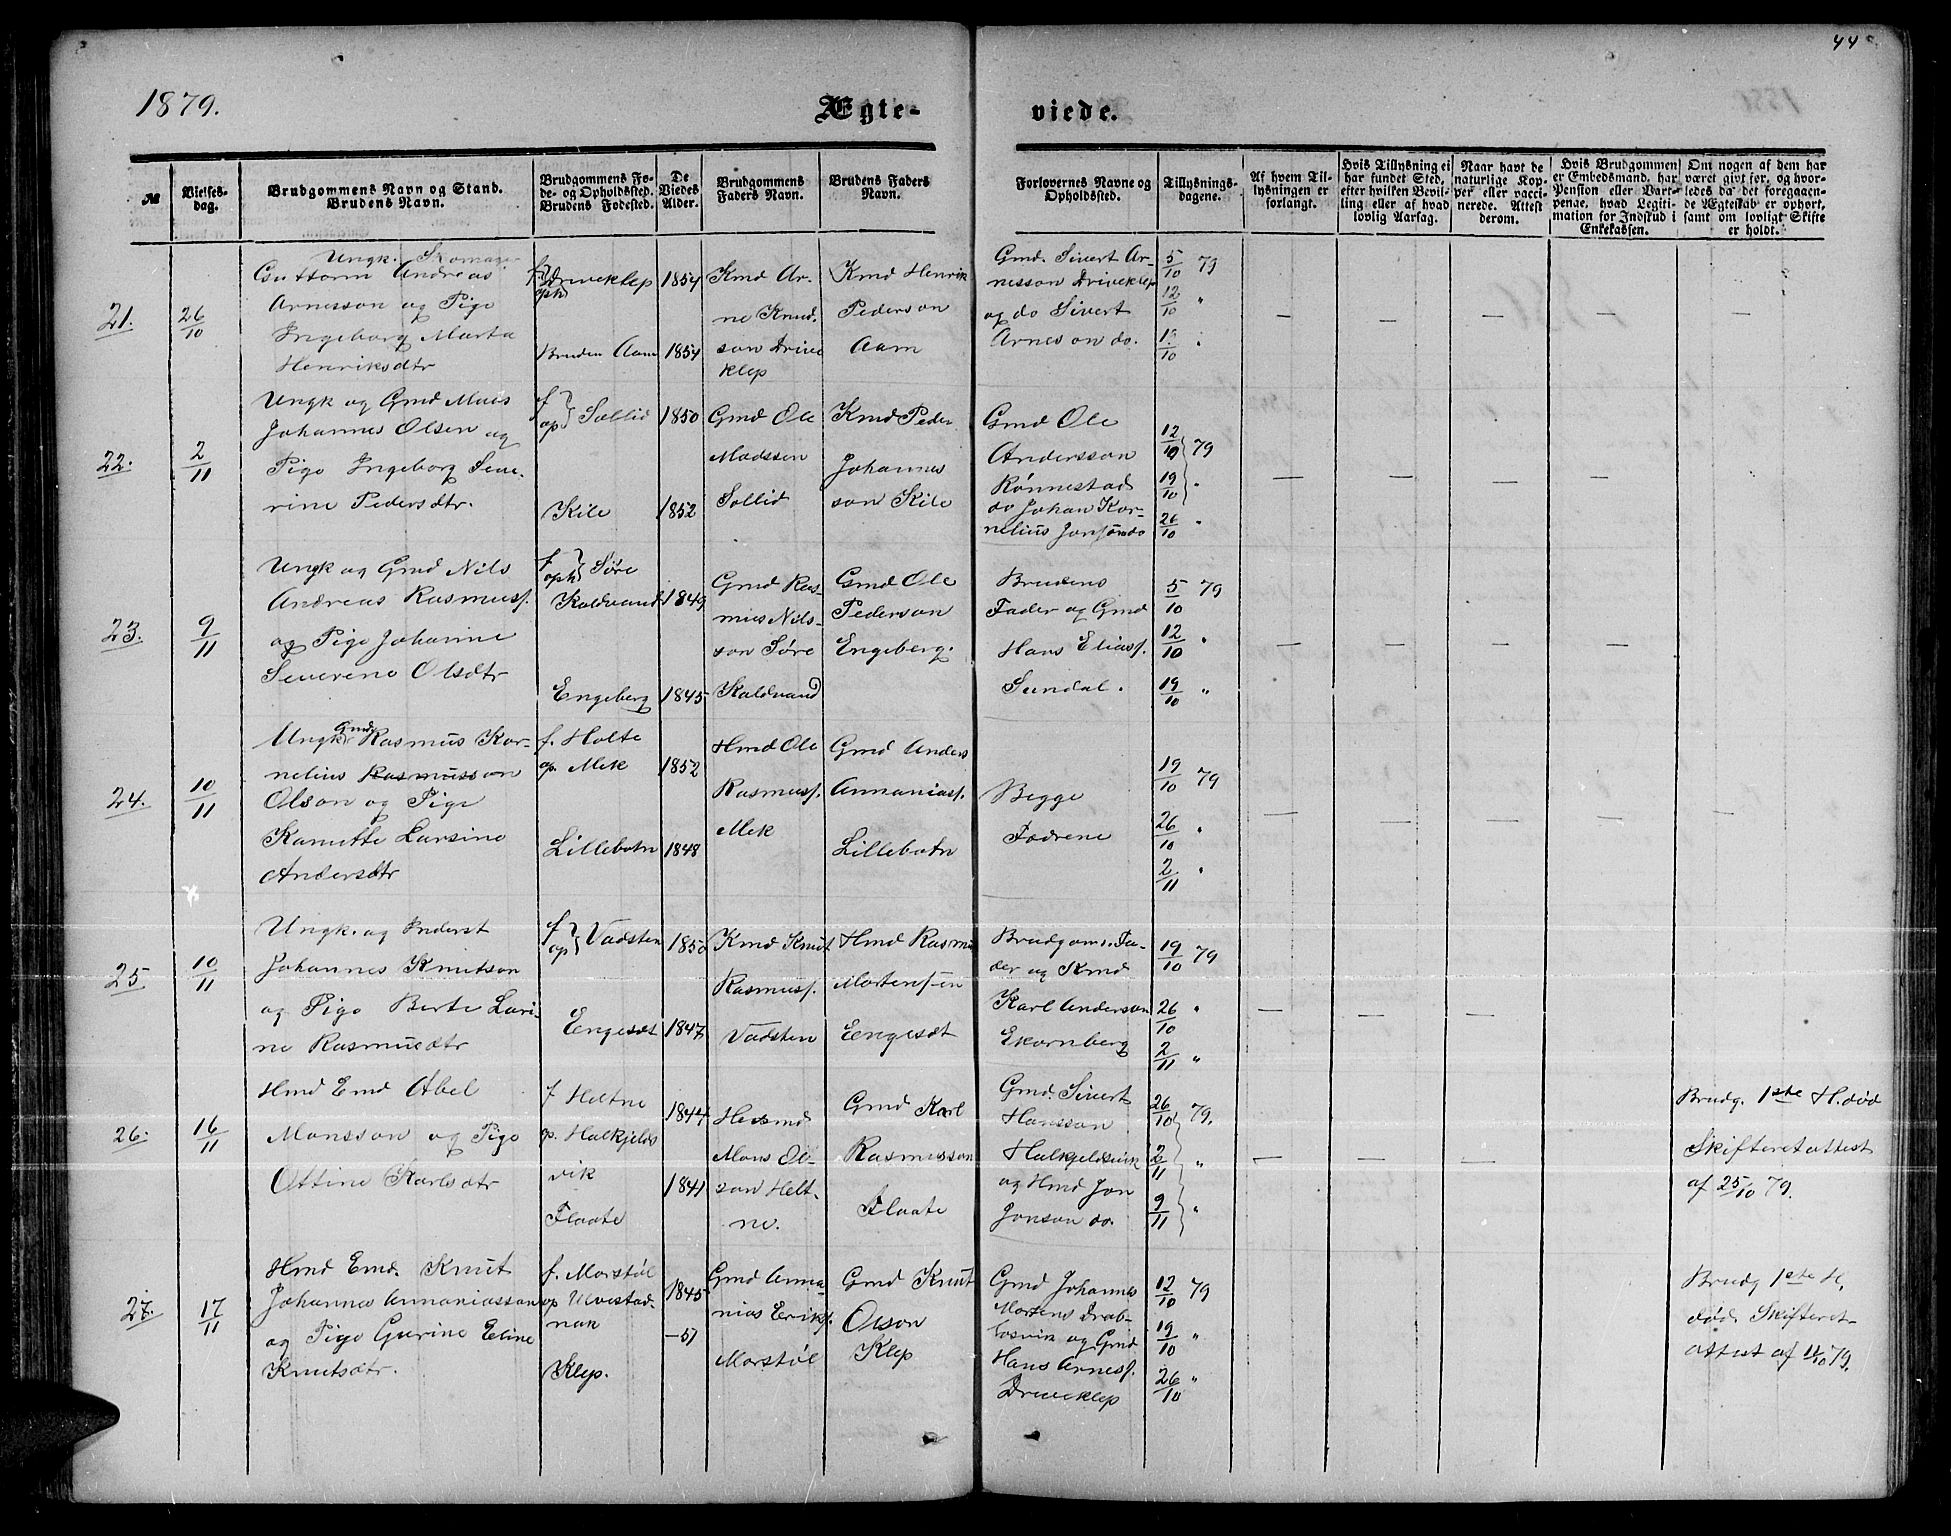 44
1879.
Ægte-
viede.
№
Vielses-
dag.
Brudgommens Navn og Stand.
Brudens Navn.
Brudgommens Fø-
de- og Opholdssted.
Brudens Fødested.
De
Viedes
Alder.
Brudgommens
Faders Navn.
Brudens Faders
Navn.
Forlovernes Navne og
Opholdssted.
Tillysnings-
dagene.
Af hvem Til-
lysningen er
forlangt.
Hvis Tillysning ei
har fundet Sted,
efter hvilken Bevil-
ling eller af hvad
lovlig Aarsag.
Naar havt de
naturlige Kop-
per eller vacci-
nerede. Attest
derom.
Hvis Brudgommen
er Embedsmand, har
Pension eller Vart-
penge, hvad Legiti-
mation for Indskud i
Enkekassen.
Om nogen af dem har
været gift før, og hvor-
ledes da det foregaaen-
de Ægteskab er ophørt,
samt om lovligt Skifte
er holdt.
21.
26/10
Ungk. Skomager
Guttorm Andreas
Arnesson og Pige
Ingeborg Marta
Henriksdtr
f
oph
Driveklep
Bruden Aam
1854
1854
Kmd Ar-
ne Knud-
son Drive
klep
Kmd Henrik
Pederson
Aam
Gmd. Sivert Ar-
nesson Driveklep
og do Sivert
Arneson do.
5/10 79
12/10 "
19/10 "
22.
2/11
Ungk og Gmd Mads
Johannes Olsen og
Pige Ingeborg Seve-
rine Pedersdtr.
f
op
Sollid
Kile
1850
1852
Gmd Ole
Madssen
Sollid
Kmd Peder
Johannes
son Kile
Gmd Ole
Andersson
Rønnestad
do Johan Kor-
nelius Jonson do
12/10 79
19/10 "
26/10 "
23.
9/11
Ungk og Gmd Nils
Andreas Rasmuss.
og Pige Johanne
Severene Olsdtr
f
oph
Søre
Koldvand
Engeberg
1849
1845
Gmd Ras-
mus Nils-
son Søre
Koldvand
Gmd Ole
Pederson
Engeberg.
Brudens
Fader og Gmd
Hans Eliass.
Sundal.
5/10 79
12/10 "
19/10 "
24.
10/11
Ungk Gmd Rasmus Kor-
nelius Rasmusson
Olson og Pige
Kanutte Larsine
Andersdtr
f. Holte
op. Mek
Lillebotn
1852
1848
Hmd Ole
Rasmuss.
Mek
Gmd Anders
Annaniass.
Lillebotn
Begge
Fædrene
19/10 79
26/10 "
2/11 "
25.
10/11
Ungk. og Inderst
Johannes Knutson
og Pige Berte Lari-
ne Rasmusdtr
f
op
Vadsten
Engesæt
1850
1847
Kmd Knut
Rasmuss.
Vadsten
Hmd Rasmus
Mortenssen
Engesæt
Brudgoms. Fa-
der og Kmd
Karl Anderson
Ekornberg
19/10 79
26/10 "
2/11 "
26.
16/11
Hmd Emd Abel
Monsson og Pige
Ottine Karlsdtr
f Heltne
op. Halkjelds
vik
Flaate
1844
1841
Husmd
Mons Ol-
son Helt-
ne.
Gmd Karl
Rasmusson
Flaate
Gmd. Sivert
Hansson
Halkjeldsvik
og Hmd Jon
Jonson do.
26/10 79.
2/11 "
9/11 "
Brudg. 1ste H. død
Skifteretattest
af 25/10 79.
27.
17/11
Hmd Emd. Knut
Johannes Annaniasson
og Pige Gurine Eline
Knutsdtr.
f. Morstøl
op Ulvestad-
nak
Klep.
1845
—51
Gmd Anna-
nias Eriks.
Morstøl
Gmd Knut
Olson
Klep
Gmd Johannes
Mortens Drab-
løsvik og Gmd
Hans Arness.
Driveklep
12/10 79
19/10 "
26/10 "
Brudg 1ste H.
død. Skifteret-
attest af 11/10 79.